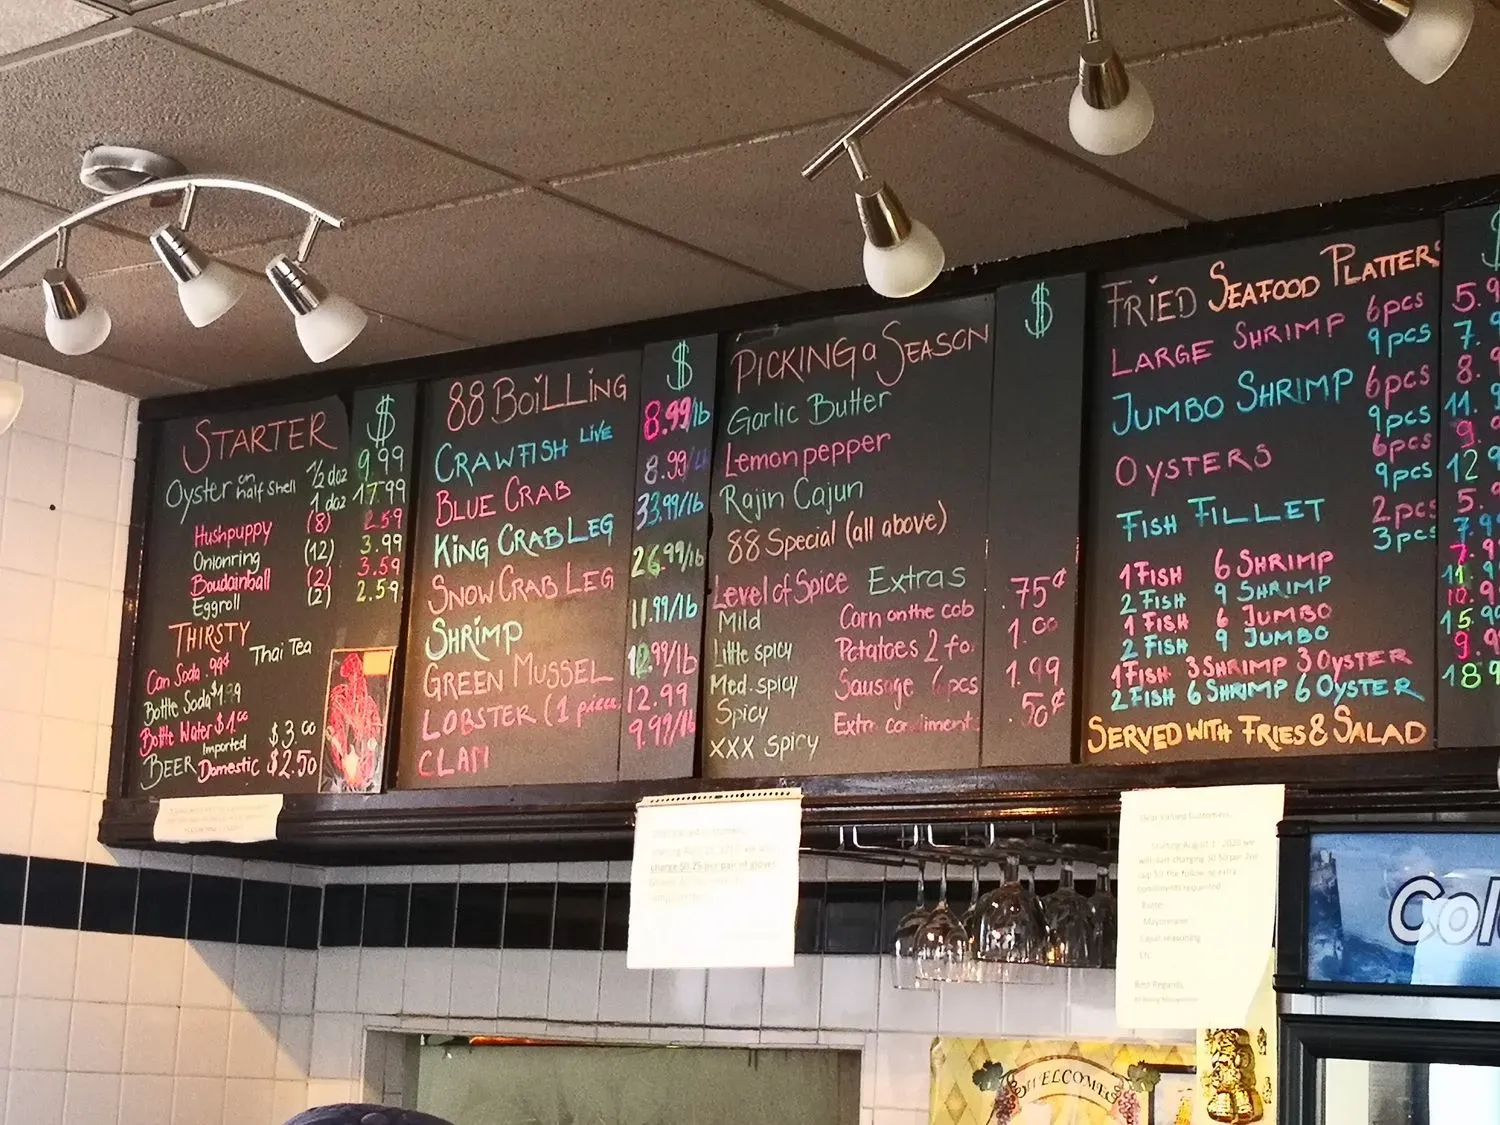 STARTER $
Oyster on half shell 1/2 doz 9.99
1 doz 17.99
Hushpuppy (8) 2.59
Onionring (12) 3.99
Boudainball (2) 3.59
Eggroll (2) 2.59
THIRSTY
Can Soda .99¢ Thai Tea
Bottle Soda $1.99
Bottle Water $1.00
BEER Imported $3.00
Domestic $2.50
88 BOiLLiNG $
CRAWFISH LIVE 8.99/lb
BLUE CRAB 8.99/lb
KING CRAB LEG 33.99/lb
SNOW CRAB LEG 26.99/lb
SHRIMP 11.99/lb
GREEN MUSSEL 12.99/lb
LOBSTER (1 piece 12.99
CLAM 9.99/lb
PICKING a SEASON $
Garlic Butter
Lemonpepper
Rajin Cajun
88 Special (all above)
Level of Spice Extras
Mild Corn on the cob .75¢
Little spicy Potatoes 2 fo. 1.00
Med. spicy Sausage 6pcs 1.99
Spicy Extr condiment. .50¢
XXX Spicy
FRIED SEAFOOD PLATTERS $
LARGE SHRIMP 6pcs 5.9
9pcs 7.
JUMBO SHRIMP 6pcs 8.
9pcs 11.
OYSTERS 6pcs 9.
9pcs 12
FISH FILLET 2pcs 5.
3pcs 7.9
1 FISH 6 SHRIMP 7.9
2 FISH 9 SHRIMP 11.
1 FISH 6 JUMBO 10.9
2 FISH 9 JUMBO 15.9
1 FISH 3 SHRIMP 3 OYSTER 9.9
2 FISH 6 SHRIMP 6 OYSTER 189
SERVED WITH FRIES & SALAD
charge $0.25 per pair of gloves
Dear Valued Customers,
Starting August 1, 2020 we
will start charging $0.50 per 2oz
cup for the following extra
condiments requested
Butter
Mayonnaise
Cajun seasoning
Etc.
Best Regards,
Col
WELCOME